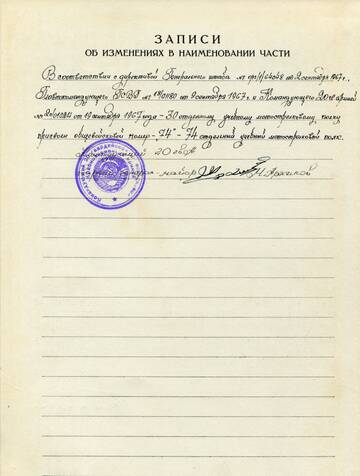 ЗАПИСИ
ОБ ИЗМЕНЕНИЯХ В НАИМЕНОВАНИИ ЧАСТИ
В соответствии с директивой Генерального штаба № орг/1/ от 2 сентября 1967 г.,
Главнокомандующего ГСВГ № от 9 сентября 1967 г. и Командующего 20 гв. армией
№ от 19 сентября 1967 года – 30 отдельному учебному мотострелковому полку
присвоен общевойсковой номер – "74" – 74 отдельный учебный мотострелковый полк.
20 гв ОА
генерал-майор